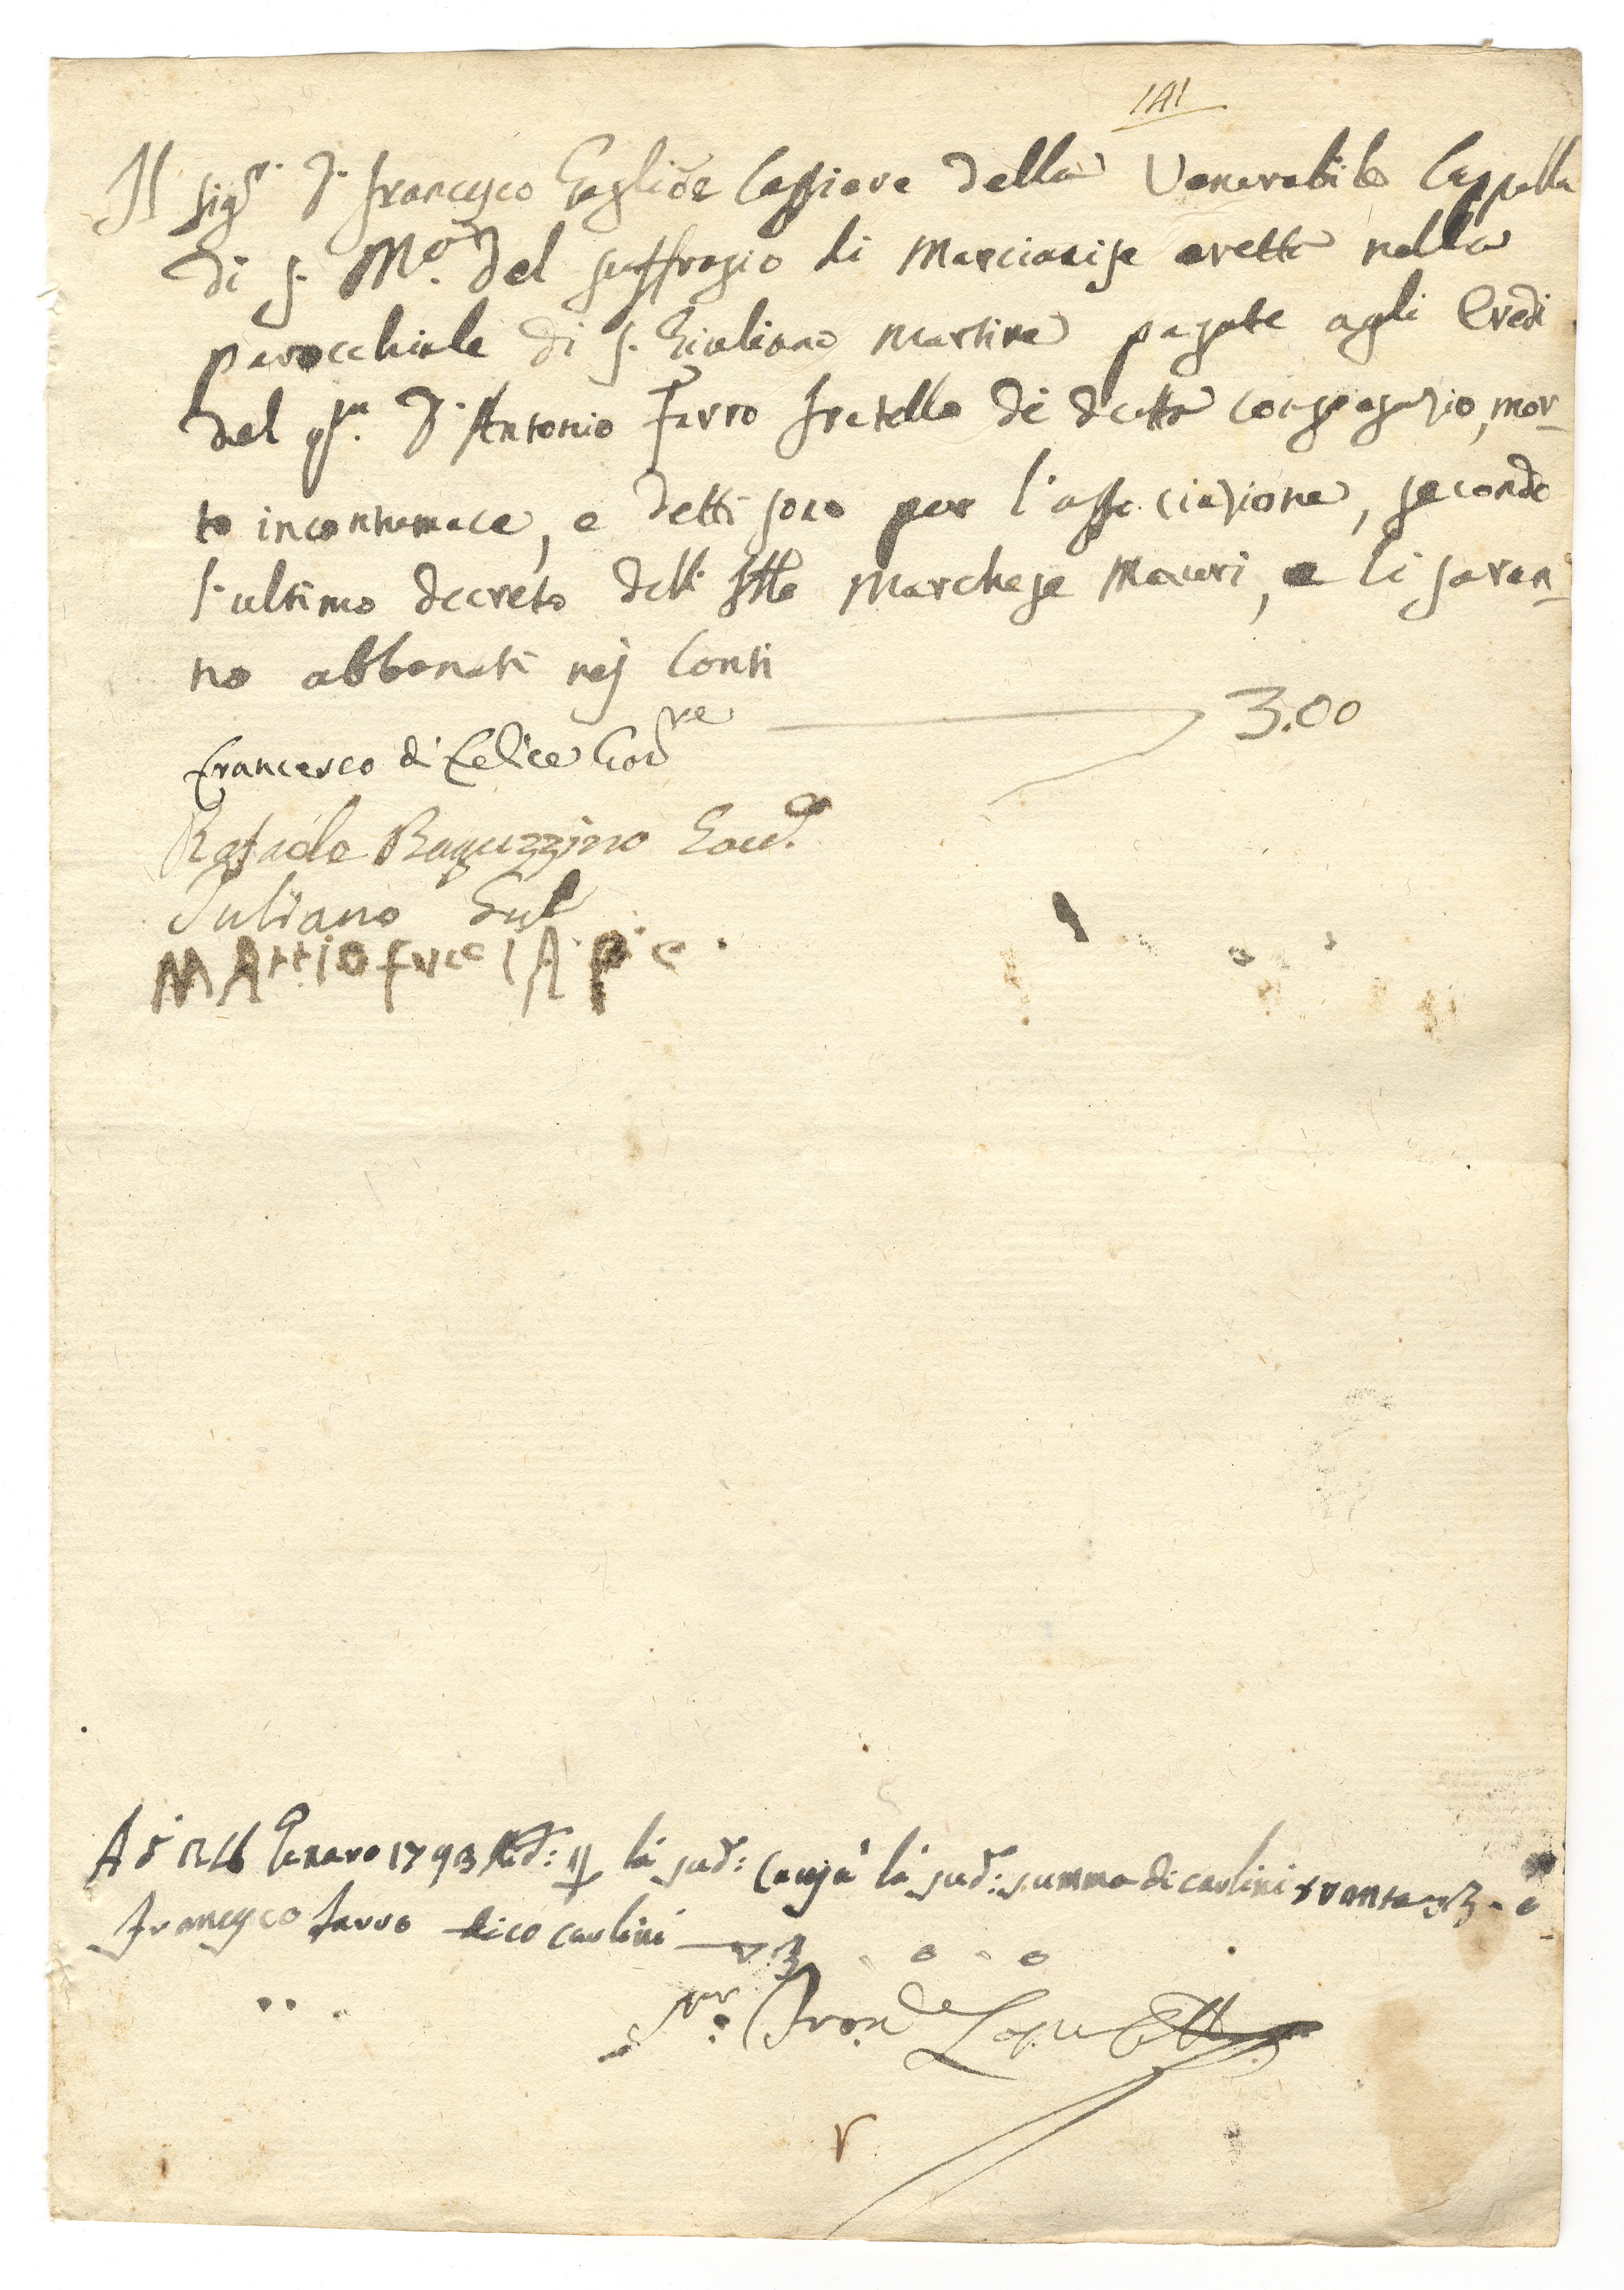 141
Il sig.r D. Francesco Gaglione Cassiere della Venerabile Cappella
di S. M.a del suffragio di Marcianise eretta nella
parocchiale di S. Giuliano Martire pagate agli Eredi
del qm. D. Antonio Ferro fratello di detta congregazio, mor-
to incontumace, e detti sono per l'associazione, secondo
l'ultimo decreto dell' Marchese Mauri, e li saran-
no abbonati nej Conti
3.00
Francesco di Felice Gov.re
Rafaele Raguzzino Gov.e
Iuliano
MAttio
A dì 26 Genaro 1793 la sud: Causa la sud: summa di carlini trenta 3-0
Francesco Farro dico carlini 3. 0. 0